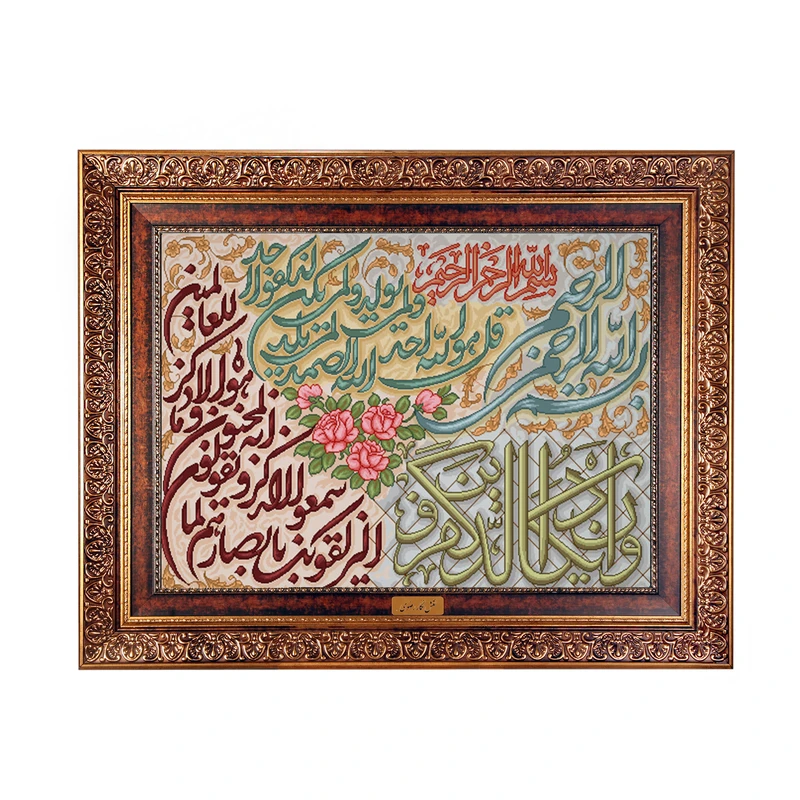 بسم الله الرحمن الرحیم
بسم الله الرحمن الرحیم
قل هو الله احد الله الصمد لم یلد
ولم یولد ولم یکن له کفوا احد
وان یکاد الذین کفروا
لیزلقونک بابصارهم لما
سمعوا الذکر و یقولون
انه لمجنون و ما
هو الا ذکر
للعالمین